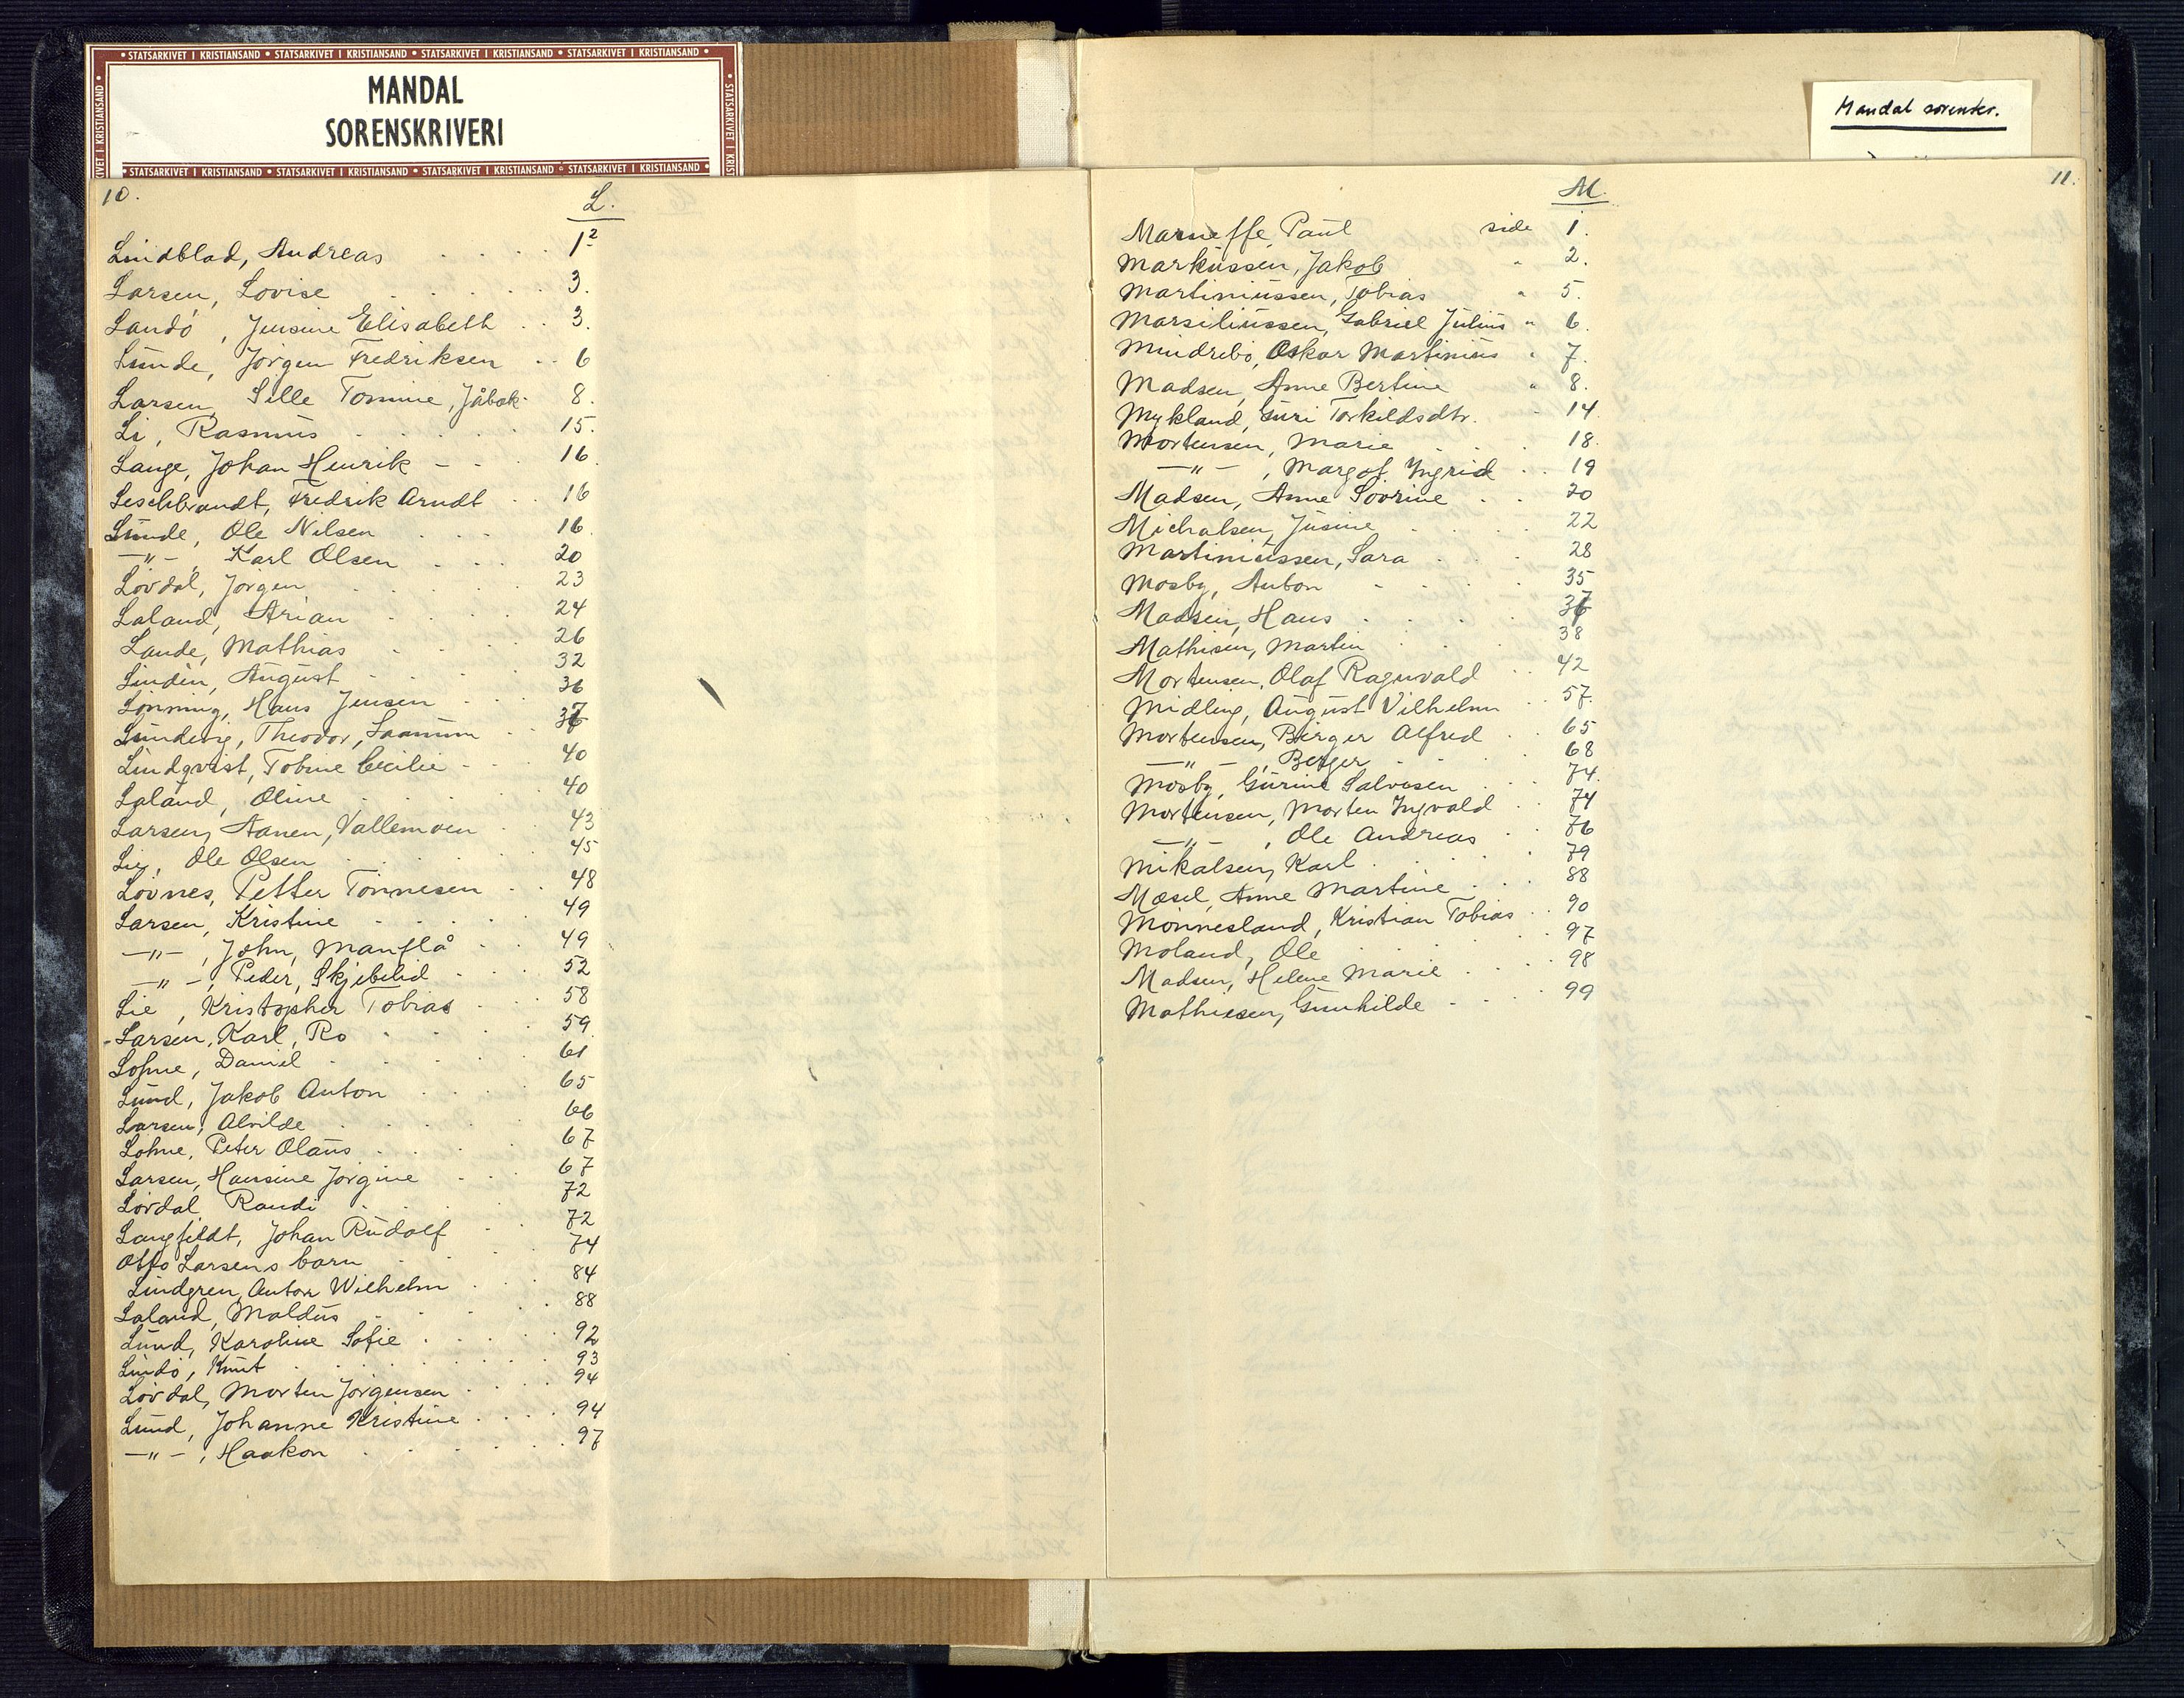 • STATSARKIVET I KRISTIANSAND • STATSARKIVET I KRISTIANSAND • STATSARKIVET I KRISTIANSAND • STATSARKIVET I KRISTIANSAND •
MANDAL
SORENSKRIVERI
• STATSARKIVET I KRISTIANSAND • STATSARKIVET I KRISTIANSAND • STATSARKIVET I KRISTIANSAND • STATSARKIVET I KRISTIANSAND •
10.
L.
Lindblad, Andreas . . . . 1 2
Larsen, Lovise . . . . . 3.
Landö, Jensine Elisabeth . . 3.
Lunde, Jörgen Fredriksen . . 6
Larsen, Sille Tomine, Jåbæk 8.
Li, Rasmus . . . . . 15.
Lange, Johan Henrik - - . 16.
Leschbrandt, Fredrik Arndt . . 16
Lunde, Ole Nilsen . . . 16.
—"—, Karl Olsen . . . . 20
Lövdal, Jörgen . . . . 23
Laland, Arian . . . . 24
Lande, Mathias . . . . 26
Lindin, August . . . . 32
Lönning, Hans Jensen . . 36
Lundevig, Theodor, Saanum . . 37
Lindqvist, Tobine Cecilie - . 40
Laland, Oline . . . . 40
Larsen, Aanen, Vallemoen . 43
Lie, Ole Olsen . . . . 45
Lövnes, Petter Tönnesen . . 48
Larsen, Kristine . . . . 49
—"—, John, Manflå . . 49
—"—, Peder, Skjebelid . . 52
Lie, Kristopher Tobias . . 58
Larsen, Karl, Ro . . . 59
Lohne, Daniel . . . . 61
Lund, Jakob Anton . . . 65
Larsen, Alvilde . . . . 66
Lohne, Peter Olaus . . . 67
Larsen, Hansine Jörgine . . 67
Lövdal, Randi . . . . 72
Langfeldt, Johan Rudolf . . 72
Otto Larsens barn . . . 74
Lindgren, Anton Wilhelm . . . 84
Laland, Maldus . . . . . 88
Lund, Karoline Sofie . . . . 92
Lindö, Knut . . . . . . 93
Lövdal, Morten Jörgensen . . . 94
Lund, Johanne Kristine . . . . 94
—"—, Haakon . . . . . 97
Mandal sorenskr.
11.
M.
Marneffe, Paul side 1.
Markussen, Jakob " 2.
Martiniussen, Tobias " 5.
Marsiliussen, Gabriel Julius " 6.
Mindrebö, Oskar Martinius " 7.
Madsen, Anne Bertine " 8.
Mykland, Guri Torkildsdtr. - 14.
Mortensen, Marie . . . 18.
—"—, Margot Yngrid . . 19
Madsen, Anne Sovrine . . 20
Michalsen, Jusine . . . 22
Martiniussen, Sara . . . 28
Mosby, Anton . . . . 35
Madsen, Hans . . . . 37
Mathisen, Martin . . . 38
Mortensen, Olaf Ragnvald . . 42
Midling, August Vilhelm . . 57.
Mortensen, Birger Alfred . 65
—"—, Berger . . . 68
Mosby, Gurine Salvesen . . 74.
Mortensen, Morten Yngvald . . 74
—"—, Ole Andreas . . 76
Mikalsen, Karl . . . . 79
Mæsel, Anne Martine . . . 88
Mönnesland, Kristian Tobias . . 90
Moland, Ole . . . . . 97
Madsen, Helene Marie . . . . 98
Mathiesen, Gunhilde . . . . 99